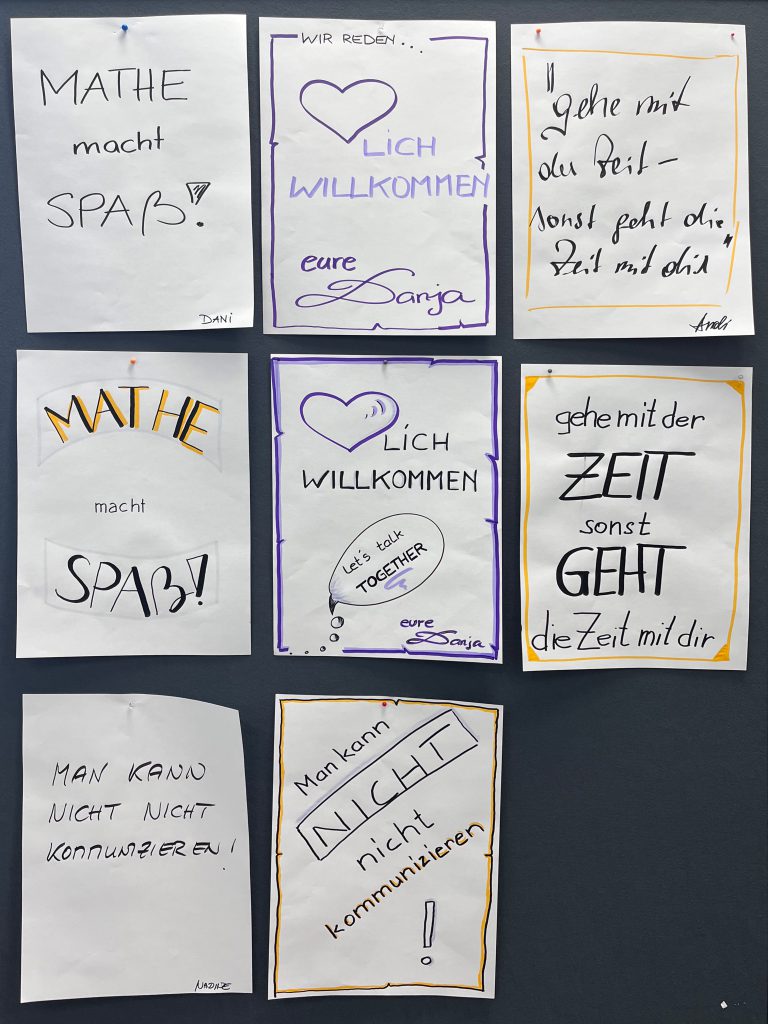 MATHE
macht
SPAß!
DANI
WIR REDEN...
LICH
WILLKOMMEN
eure
Danja
"gehe mit
der Zeit –
sonst geht die
Zeit mit dir"
Andi
MATHE
macht
SPAß!
LICH
WILLKOMMEN
Let's talk
TOGETHER
eure
Danja
gehe mit der
ZEIT
sonst
GEHT
die Zeit mit dir
MAN KANN
NICHT NICHT
KOMMUNIZIEREN!
NADINE
Man kann
NICHT
nicht
kommunizieren
!